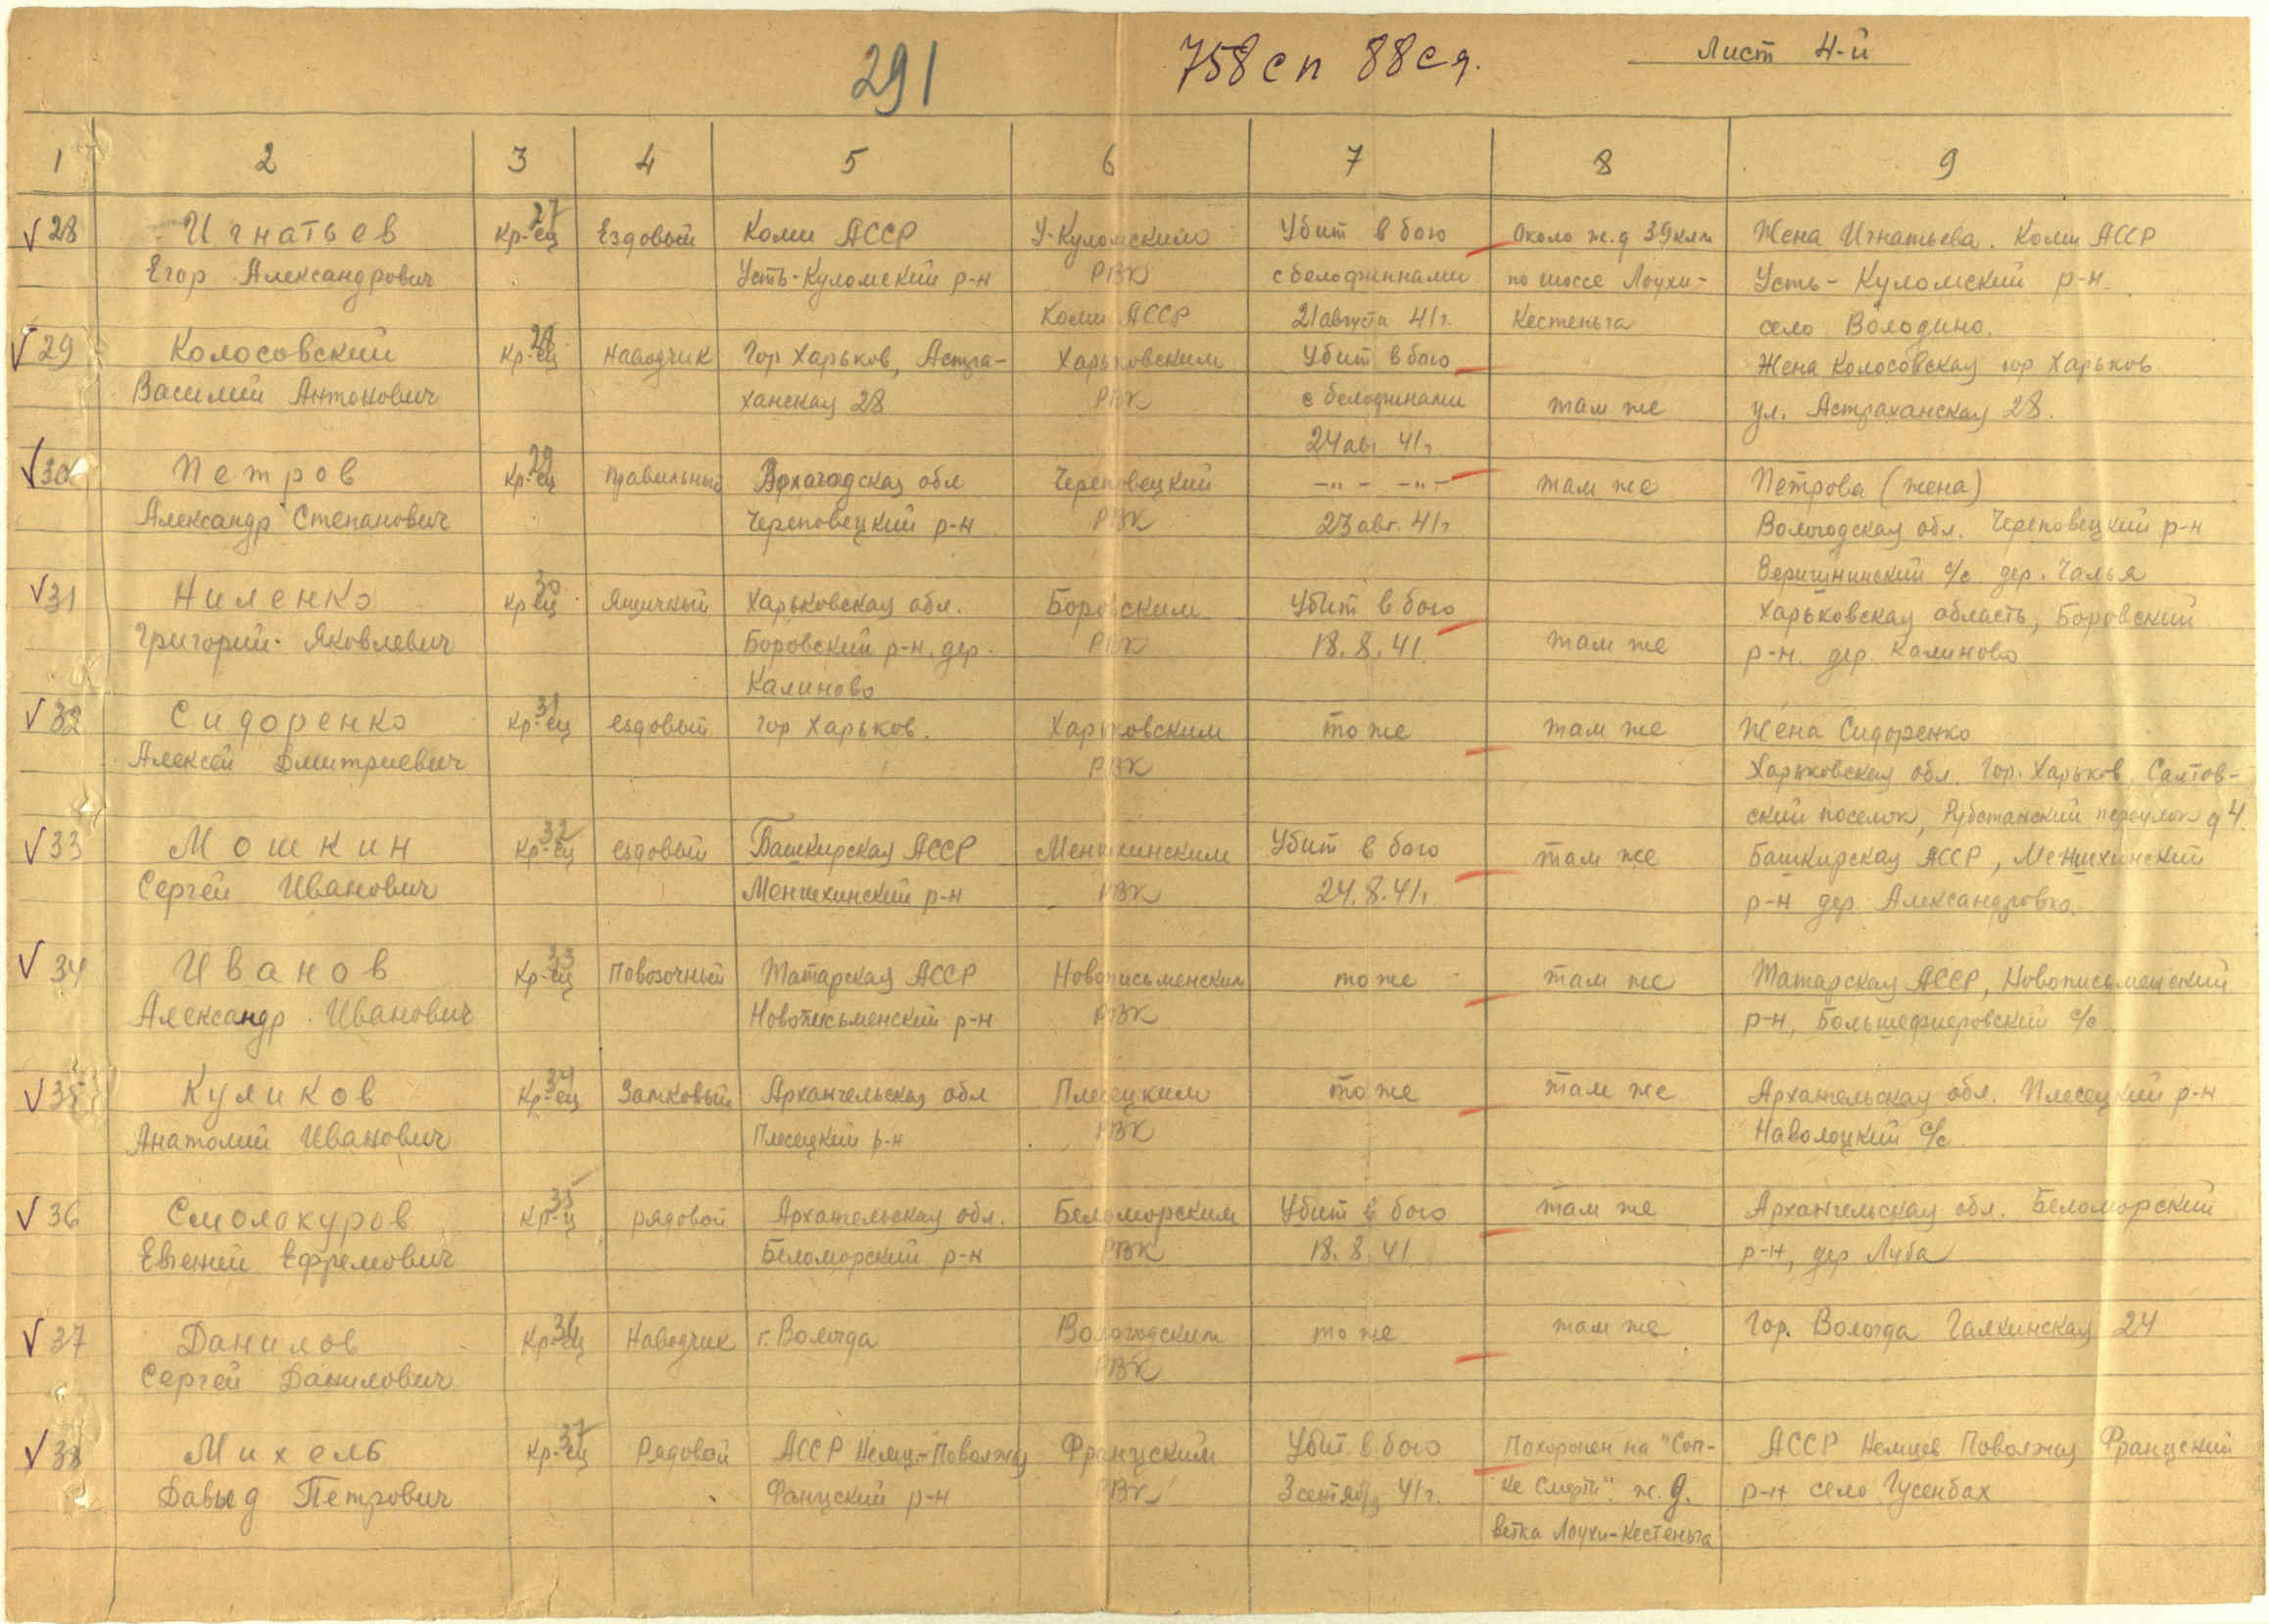 291
758 сп 88 сд.
Лист 4-й
1 2 3 4 5 6 7 8 9
√ 28 Игнатьев Кр-ец 27 Ездовый Коми АССР У-Куломским Убит в бою Около ж.д 39 клм Жена Игнатьева. Коми АССР
Егор Александрович Усть-Куломский р-н РВК с белофиннами по шоссе Лоухи- Усть-Куломский р-н
Коми АССР 21 августа 41г. Кестеньга село Володино.
√ 29 Колосовский Кр-ец 28 Наводчик Гор Харьков, Астра- Харьковским Убит в бою Жена Колосовская гор Харьков
Василий Антонович ханская 28 РВК с белофинами там же ул. Астраханская 28.
24 авг 41г.
√ 30 Петров Кр-ец 29 правильный Вологодская обл Череповецкий -"- -"- там же Петрова (жена)
Александр Степанович Череповецкий р-н РВК 23 авг. 41г Вологодская обл. Череповецкий р-н
с/с дер.
√ 31 Ниленко Кр-ец 30 Ящичный Харьковская обл. Боровским Убит в бою Харьковская область, Боровский
Григорий Яковлевич Боровский р-н. дер. РВК 18.8.41 там же р-н. дер Калиново
Калиново
√ 32 Сидоренко Кр-ец 31 ездовый гор Харьков. Харьковским то же там же Жена Сидоренко
Алексей Дмитриевич РВК Харьковская обл. Гор. Харьков, Салтов-
ский поселок, переулок д 4.
√ 33 Мошкин Кр-ец 32 ездовый Башкирская АССР Меншихинским Убит в бою там же Башкирская АССР, Меншихинский
Сергей Иванович Меншихинский р-н РВК 24.8.41г. р-н дер. Александровка.
√ 34 Иванов Кр-ец 33 Повозочный Татарская АССР Новописьменским то же там же Татарская АССР, Новописьменский
Александр Иванович Новописьменский р-н РВК р-н, с/с
√ 35 Куликов Кр-ец 34 Замковый Архангельская обл Плесецким то же там же Архангельская обл. Плесецкий р-н
Анатолий Иванович Плесецкий р-н РВК Наволоцкий с/с
√ 36 Смолокуров Кр-ц 35 рядовой Архангельская обл. Беломорским Убит в бою там же Архангельская обл. Беломорский
Евгений Ефремович Беломорский р-н РВК 18.8.41 р-н, дер
√ 37 Данилов Кр-ец 36 Наводчик г. Вологда Вологодским то же там же Гор. Вологда Галкинская 24
Сергей Данилович РВК
√ 38 Михель Кр-ец 37 Рядовой АССР Немц.-Поволжья Францским Убит в бою Похоронен на "Соп- АССР Немцев Поволжья Францский
Давыд Петрович Фанцский р-н РВК 3 сентября 41г. ке Смерти" ж.д. р-н село Гусенбах
ветка Лоухи-Кестеньга